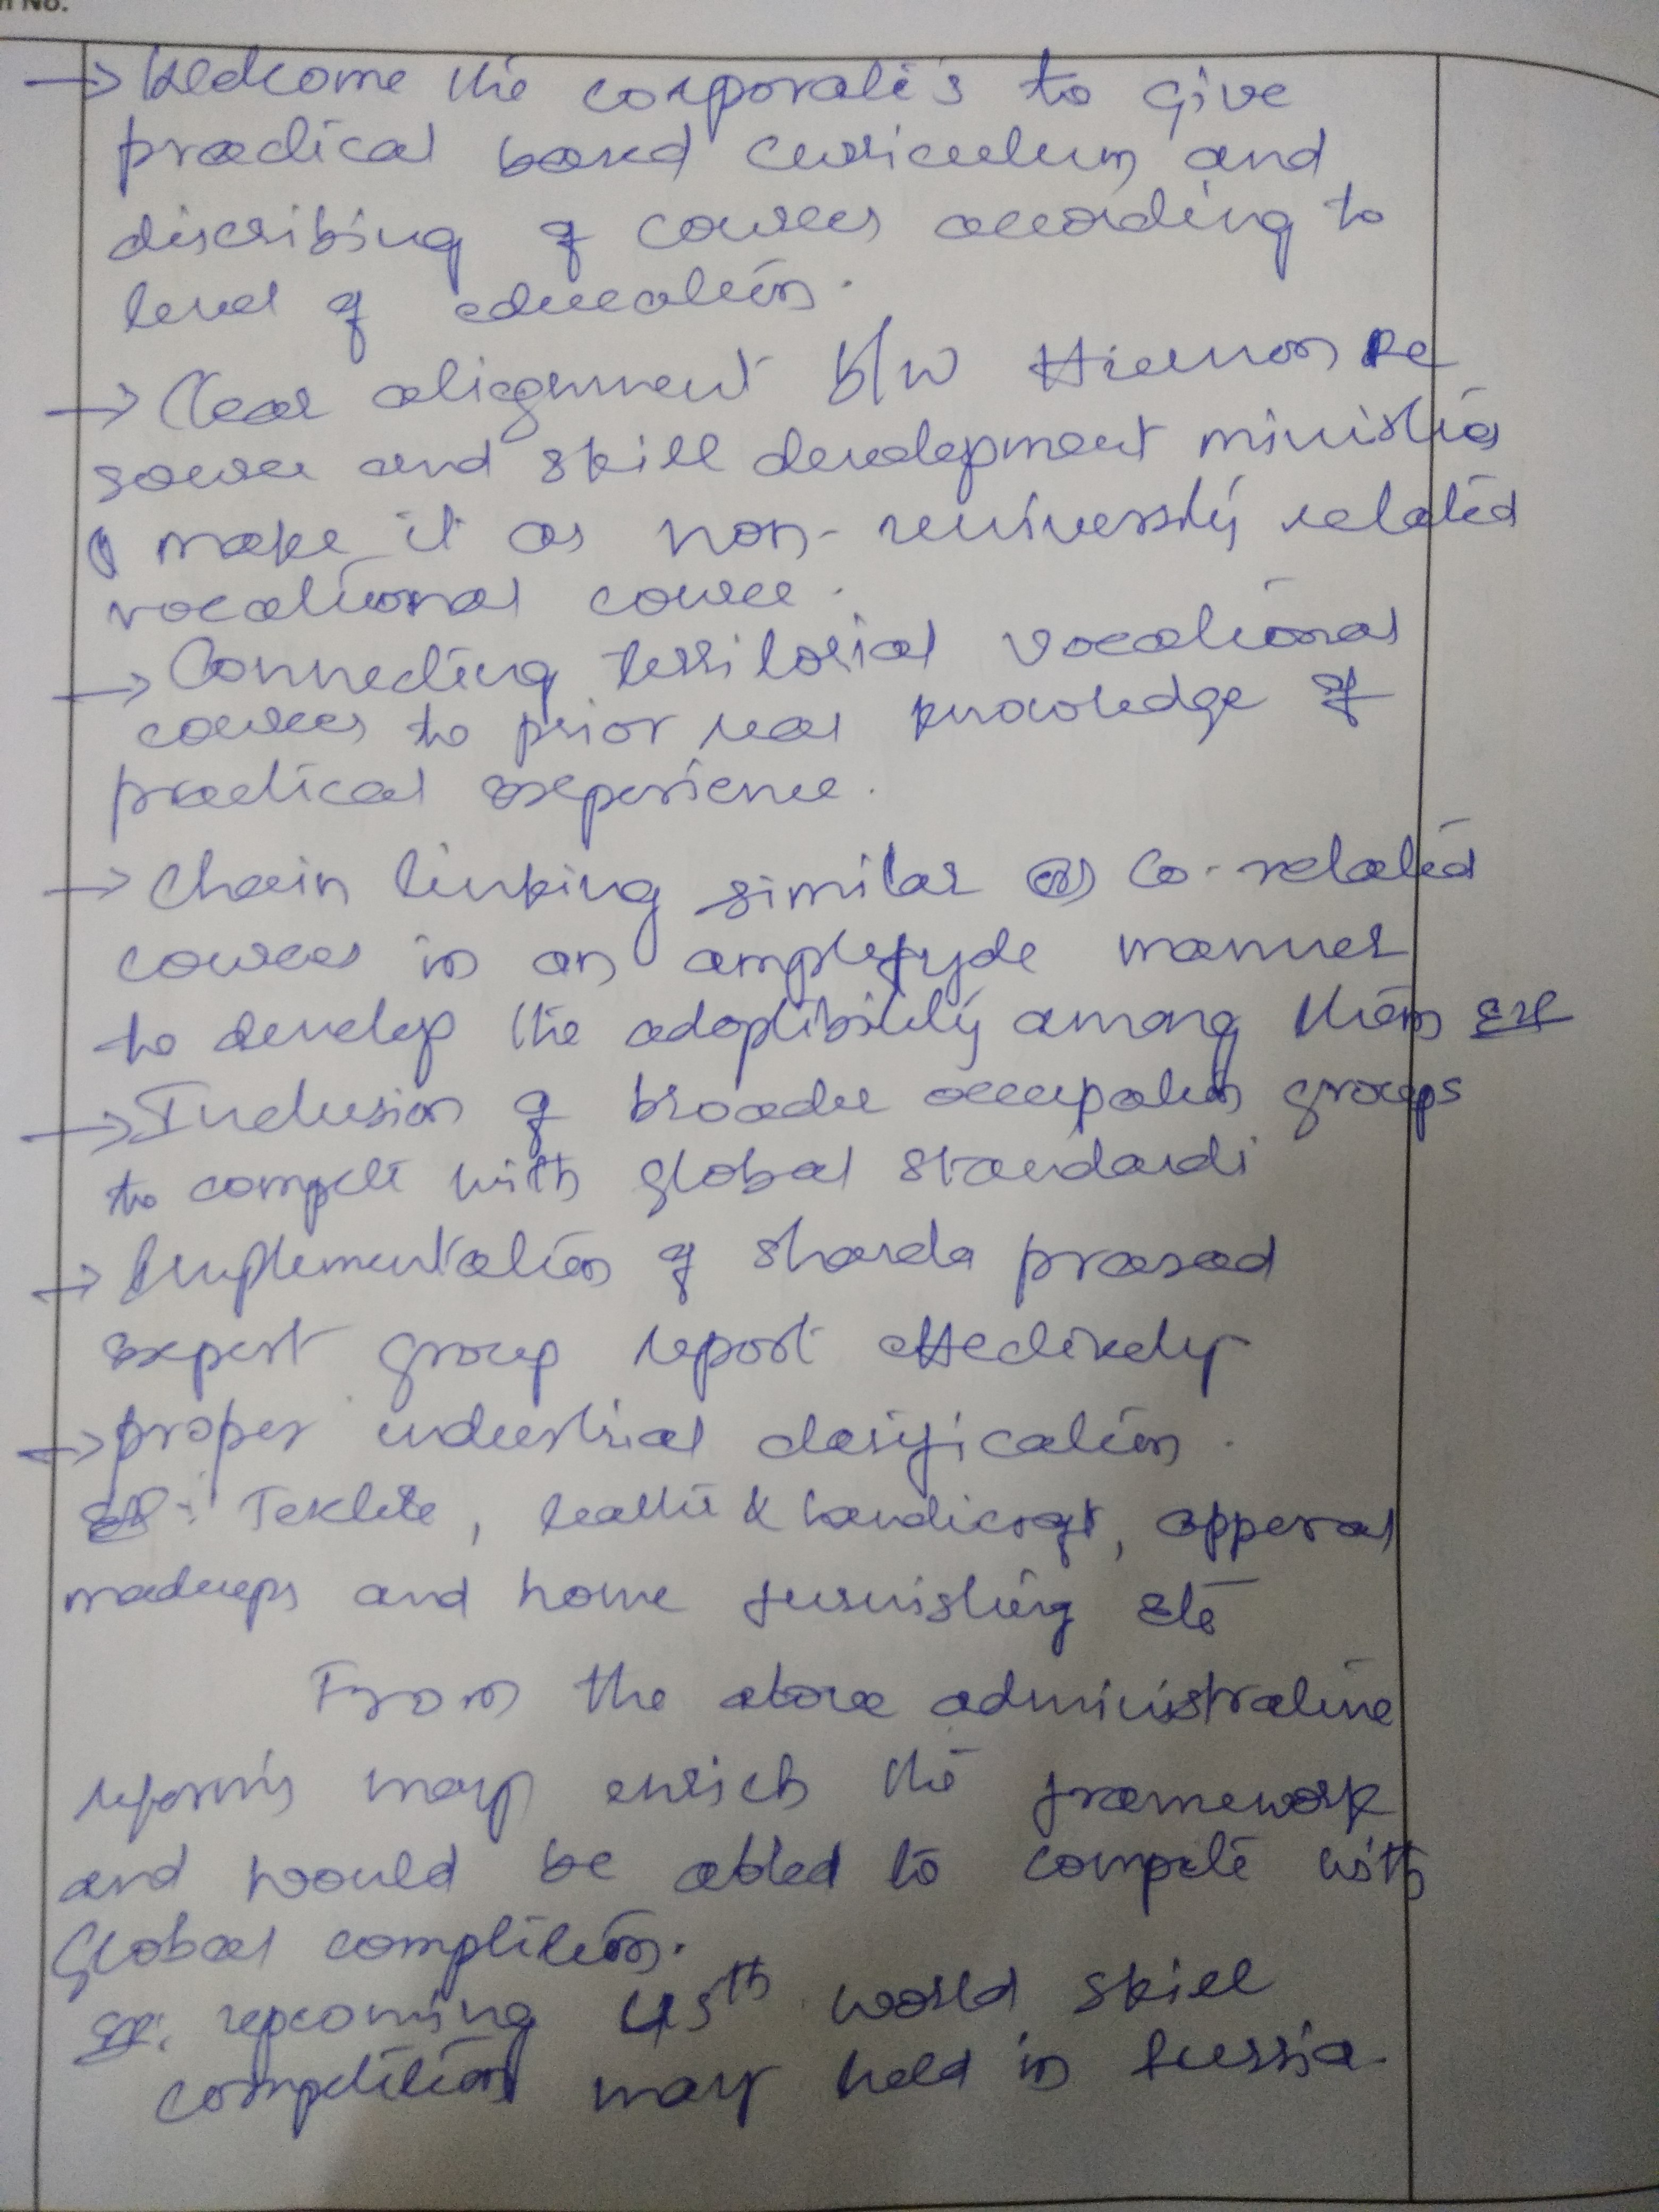 n No.
→ Welcome the corporate's to give
practical based curriculum and
discribing of courses according to
level of education.
→ Clear alignment b/w Human Re
source and skill development ministries
& make it as non-university related
vocational course.
→ Connecting territorial vocational
courses to prior real knowledge of
practical experience.
→ Chain linking similar (or) Co-related
courses in an amplefyde manner
to develop the adoptibility among them
→ Inclusion of broader occupation groups
to compete with global standards
→ Implementation of Sharda prasad
expert group report effectively
→ proper industrial classification.
Ex: Textile, leather & handicraft, apperal
madeups and home furnishing etc
From the above administrative
reforms may enrich the framework
and would be abled to compete with
Global compitition.
Ex: upcoming 45th world skill
competition may held in Russia.